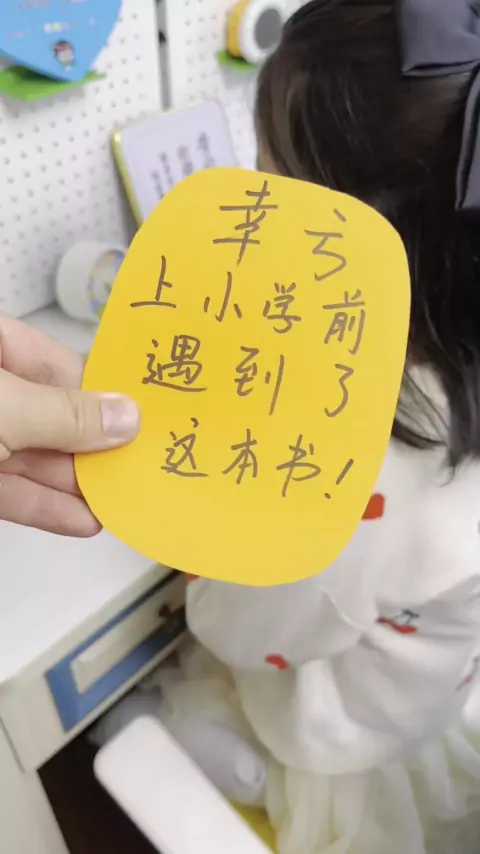 幸亏
上小学前
遇到了
这本书！